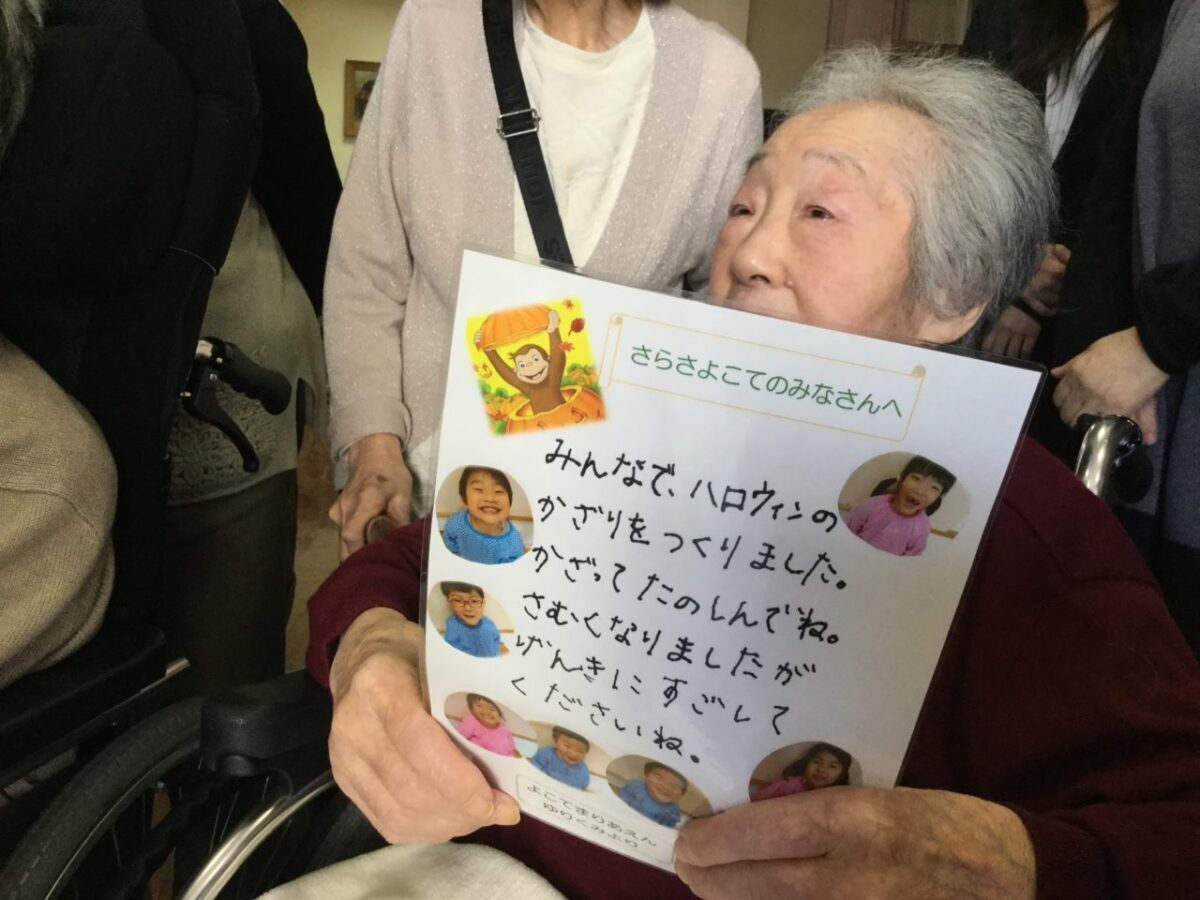 さらさよこてのみなさんへ
みんなで、ハロウィンの
かざりをつくりました。
かざってたのしんでね。
さむくなりましたが
げんきにすごして
くださいね。
よこてまりあえん
ゆりぐみより